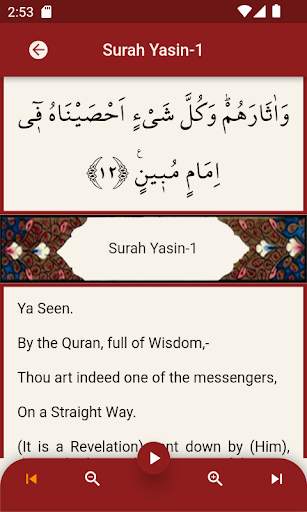 2:53
Surah Yasin-1
وَاٰثَارَهُمْ ؕ وَكُلَّ شَىْءٍ اَحْصَيْنَاهُ فِىْٓ
اِمَامٍ مُّبِيْنٍ ﴿۱۲﴾ ع
Surah Yasin-1
Ya Seen.
By the Quran, full of Wisdom,-
Thou art indeed one of the messengers,
On a Straight Way.
(It is a Revelation) sent down by (Him),